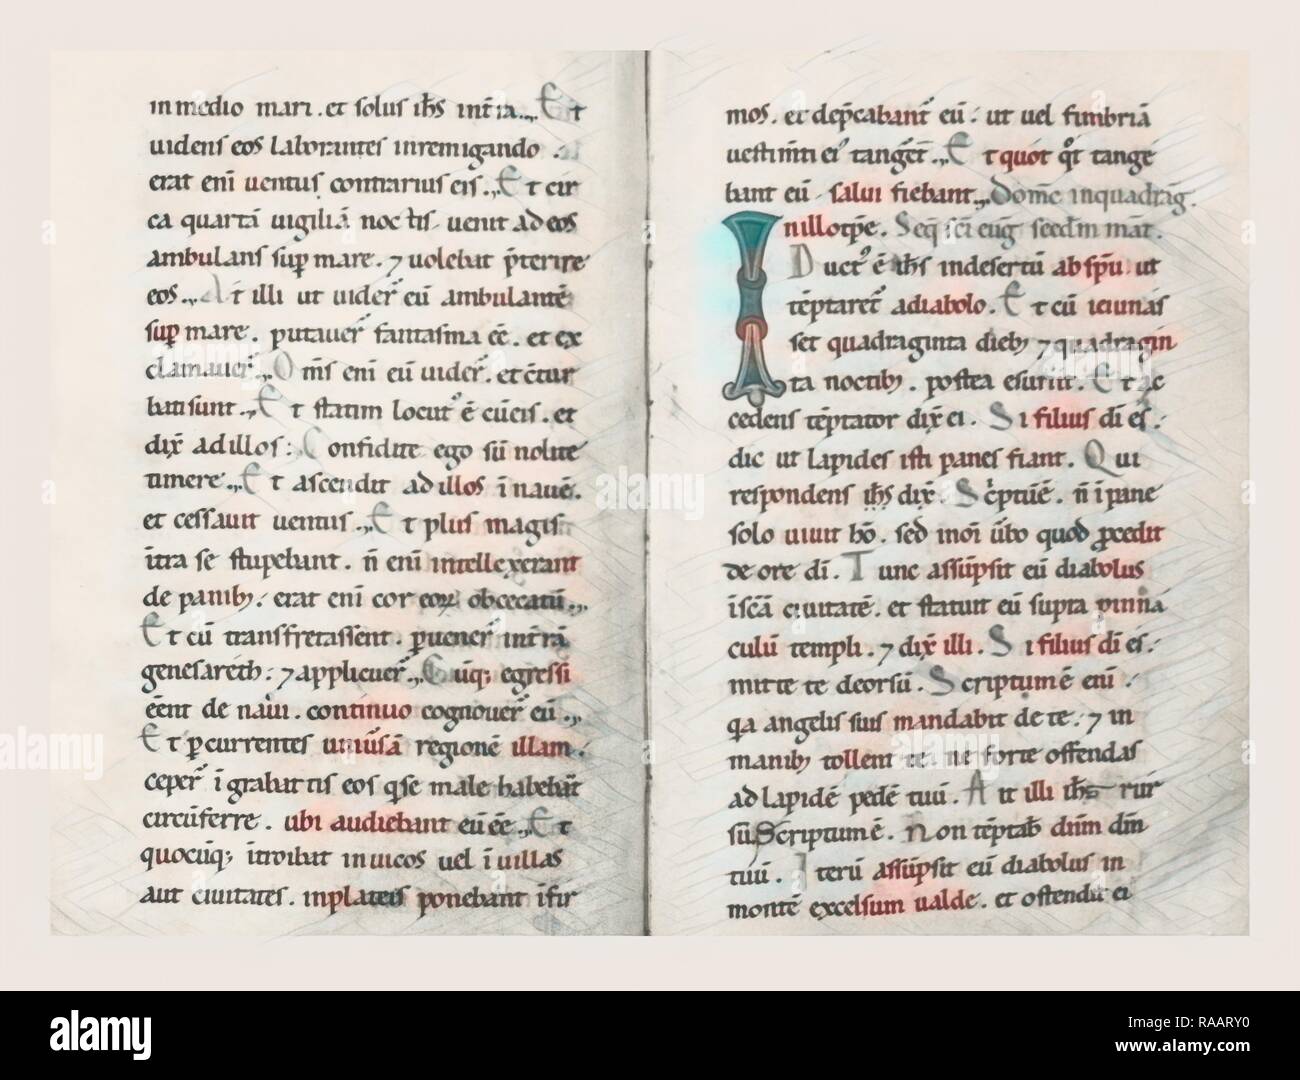 in medio mari. et solus ihs̄ int̄ra.,, Et
uidens eos laborantes inremigando.
erat eni᷈ uentus contrarius eis.,, Et cir
ca quartā uigiliā noctis. uenit ad eos
ambulans sup̄ mare. ⁊ uolebat p̄terire
eos.,, At illi ut uider̄ eū ambulantē
sup̄ mare. putauer̄ fantasma eē. et ex
clamauer̄.,, Om̄s enī eū uider̄. et c̄tur
bati sunt.,, Et statim locut᾿ ē cū eis. et
dix̄ ad illos: Confidite ego sū nolite
timere.,, Et ascendit ad illos īnauē.
et cessauit uentus.,, Et plus magis
īntra se stupebant. n̄ enī intellexerant
de panib;. erat enī cor eoꝝ obcecatū.,,
Et cū transfretassent. ꝑuener̄ int̄rā
genesareth: ⁊ applicuer̄.,, Cūq; egressi
eēnt de naui. continuo cognouer̄ eū.,,
Et ꝑcurrentes uniūsā regionē illam.
ceper̄ ī grabattis eos q̄ se male habebāt
circūferre. ubi audiebant eū eē.,, Et
quocūq; īntroibat in uicos uel ī uillas
aut ciuitates. in plateis ponebant īnfir
mos. et dep̄cabant᾿ eū. ut uel fimbriā
uestim̄ti ei᾿ tanger̄t.,, Et quot q̄t tange
bant eū. salui fiebant.,, Dom̄c in quadrag.
In illo tp̄e. Seq̄ sc̄i euḡ secd̄m mat̄.
Duct᾿ ē ihs̄ indesertū ab sp̄u. ut
tēptaret᾿ adiabolo. Et cū ieiunas
set quadraginta dieb; ⁊ quadragin
ta noctib;. postea esuriit. Et ac
cedens tēptator dix̄ ei. Si filius dī es.
dic ut lapides isti panes fiant. Qui
respondens ihs̄ dix̄. Sc̄ptū ē. n̄ ī pane
solo uiuit hō. sed inoī ūbo quod ꝓcedit
de ore dī. Tunc assūpsit eū diabolus
īscām ciuitatē. et statuit eū supra pinna
culū templi. ⁊ dix̄ illi. Si filius dī es.
mitte te deorsū. Scriptum ē enī.
qa angelis suis mandabit de te. ⁊ in
manib; tollent te. ne forte offendas
ad lapidē pedē tuū. Ait illi ihs̄ rur
sū. Scriptum ē. Non tēptab̄ dn̄m dm̄
tuū. Iterū assūpsit eū diabolus in
montē excelsum ualde. et ostendit ei
alamy
Image ID: RAARY0
www.alamy.com